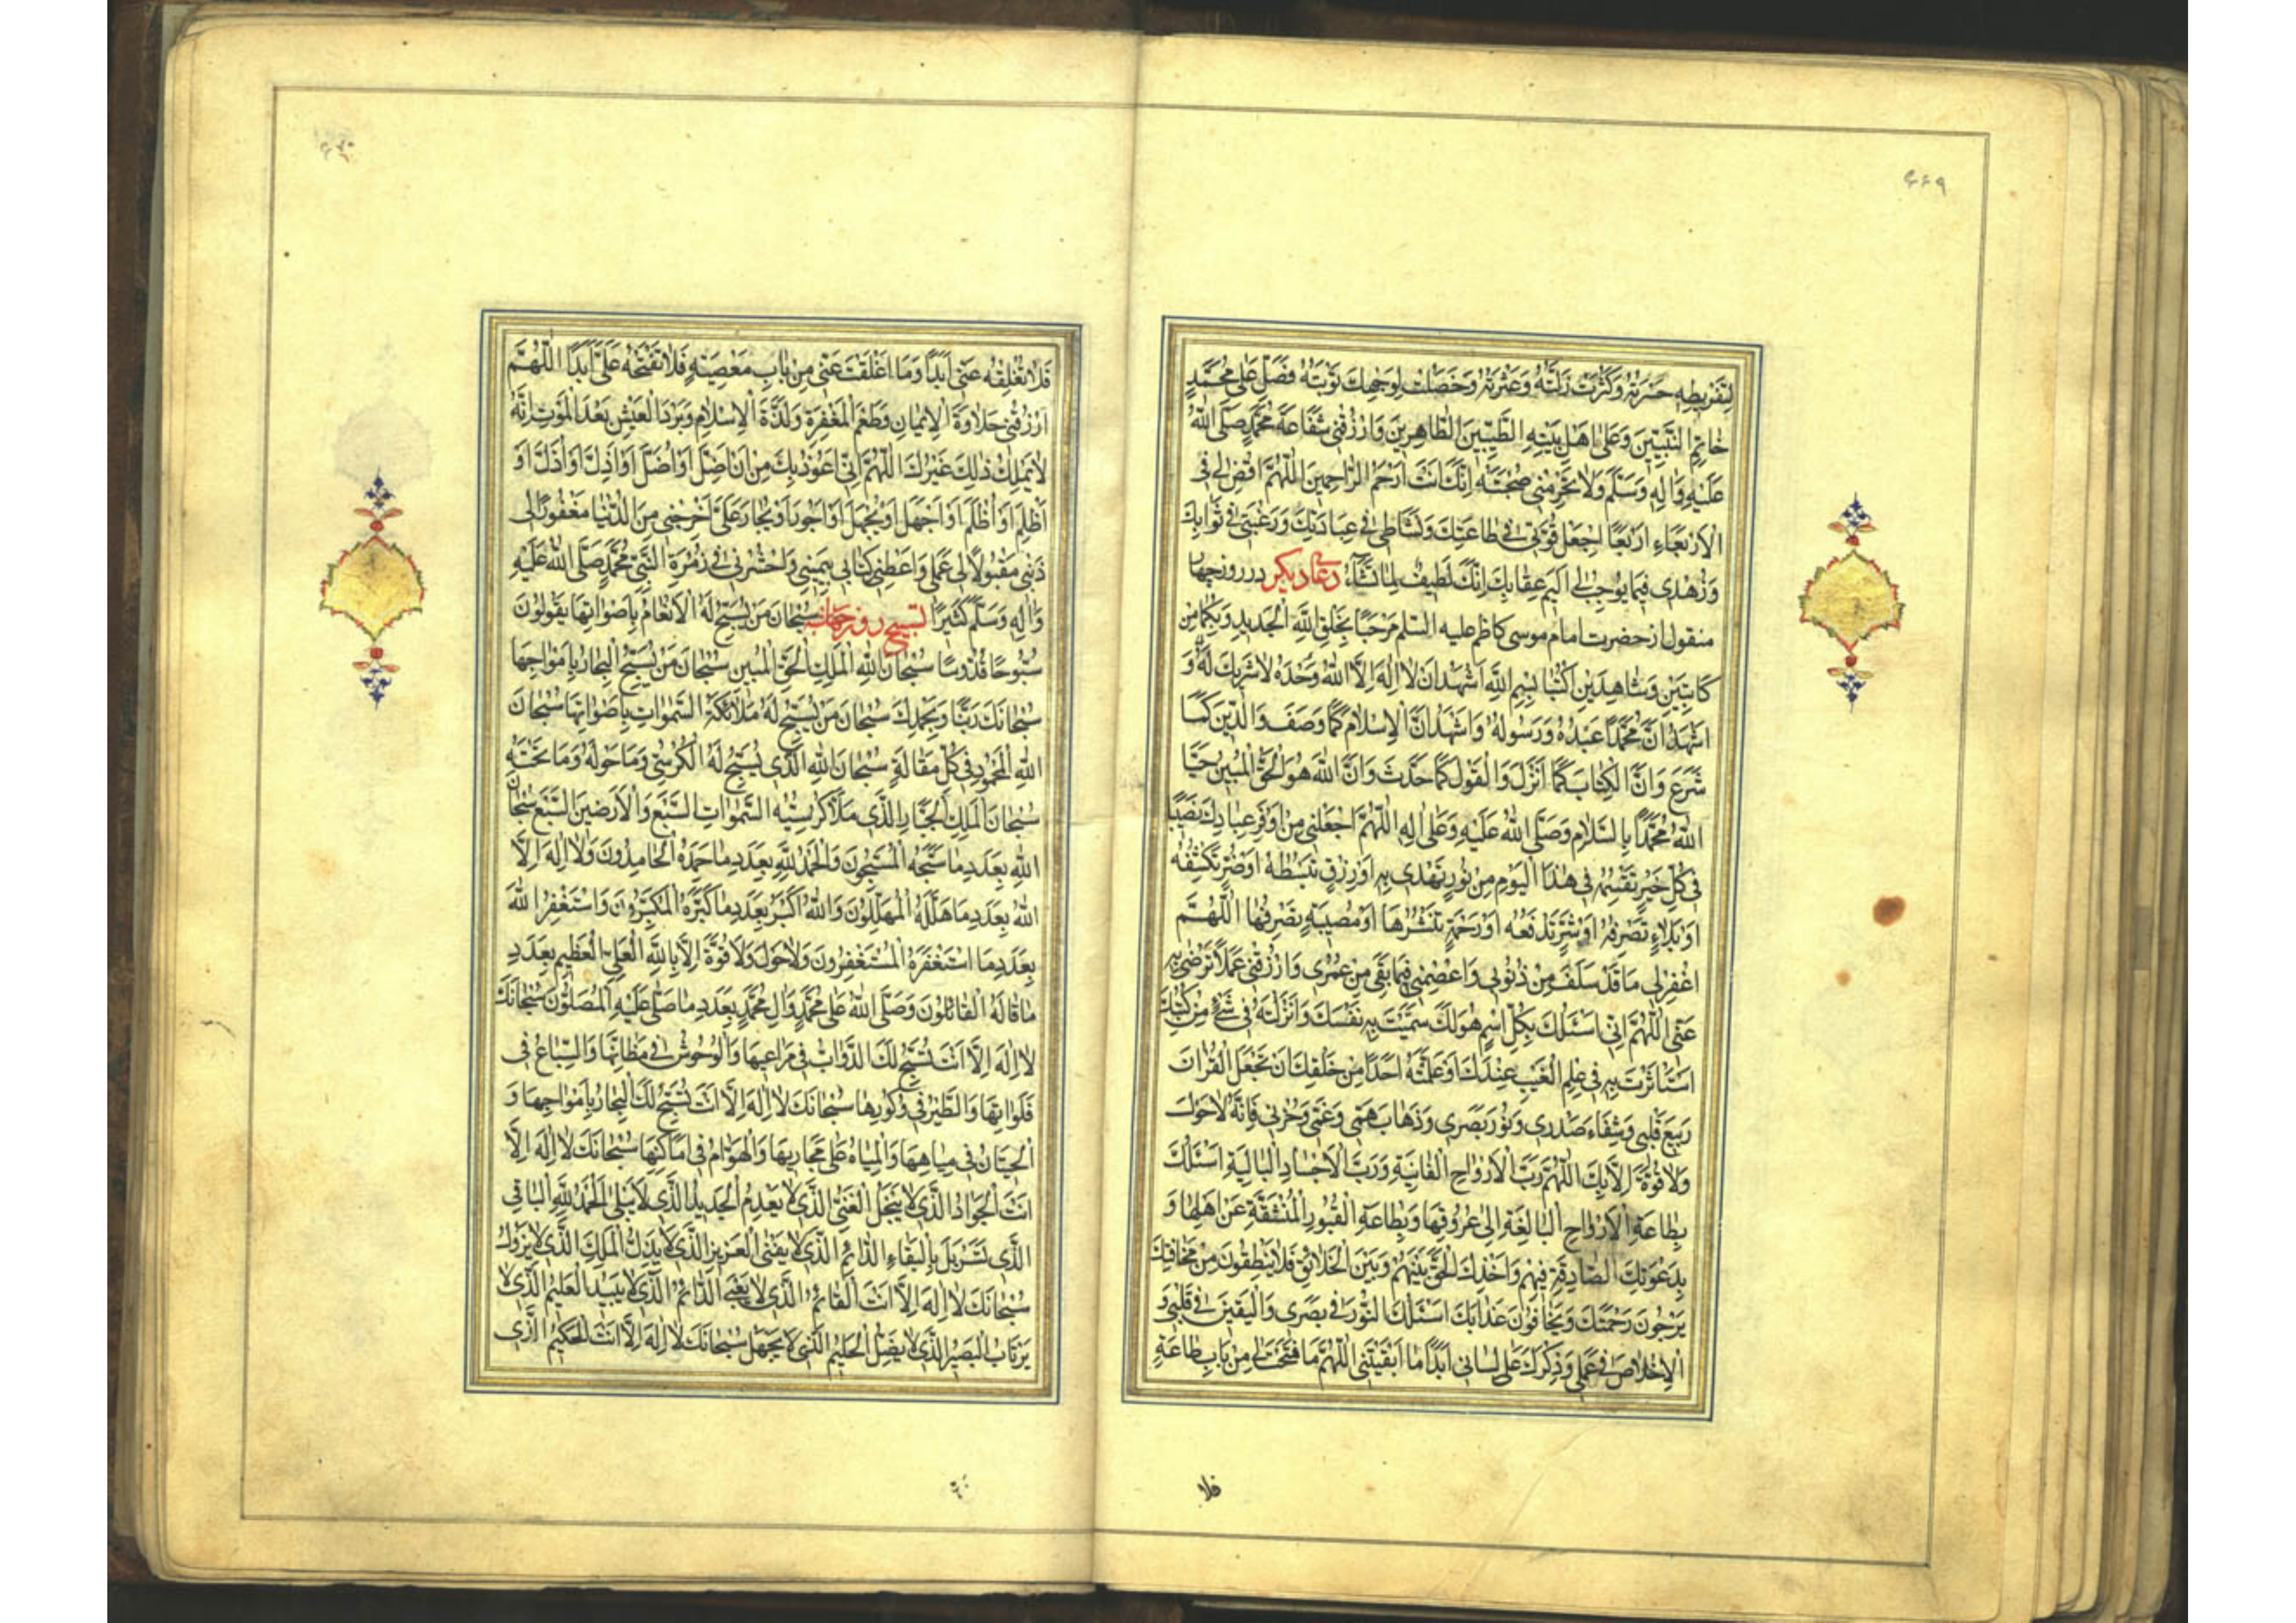 ۴۶۹
لِتَفْريطِهِ حَسْرَتُهُ وَكَثُرَتْ زَلَّتُهُ وَعَثْرَتُهُ وَخَصَلَتْ لِوَجْهِكَ تَوْبَتُهُ فَصَلِّ عَلى مُحَمَّدٍ
خاتِمِ النَّبِيّينَ وَعَلى اَهْلِ بَيْتِهِ الطَّيِّبينَ الطّاهِرينَ وَارْزُقْنى شَفاعَةَ مُحَمَّدٍ صَلَّى اللّهُ
عَلَيْهِ وَالِهِ وَسَلَّمَ وَلا تَحْرِمْنى صُحْبَتَهُ اِنَّكَ اَنْتَ اَرْحَمُ الرّاحِمينَ اَللّهُمَّ اقْضِ لى فى
الْاَرْبَعاءِ اَرْبَعًا اِجْعَلْ قُوَّتى فى طاعَتِكَ وَنَشاطى فى عِبادَتِكَ وَرَغْبَتى فى ثَوابِكَ
وَزُهْدى فيما يوجِبُ لى اَليمَ عِقابِكَ اِنَّكَ لَطيفٌ لِما تَشاءُ دعاء ديكر در روز چهار
منقول از حضرت امام موسى كاظم عليه السلم مَرْحَبًا بِخَلْقِ اللّهِ الْجَديدِ وَبِكُما مِن
كاتِبَيْنِ وَشاهِدَيْنِ اُكْتُبا بِسْمِ اللّهِ اَشْهَدُ اَنْ لا اِلهَ اِلَّا اللّهُ وَحْدَهُ لا شَريكَ لَهُ وَ
اَشْهَدُ اَنَّ مُحَمَّدًا عَبْدُهُ وَرَسُولُهُ وَاَشْهَدُ اَنَّ الْاِسْلامَ كَما وَصَفَ وَالدّينَ كَما
شَرَعَ وَاَنَّ الْكِتابَ كَما اَنْزَلَ وَالْقَوْلَ كَما حَدَّثَ وَاَنَّ اللّهَ هُوَ الْحَقُّ الْمُبينُ حَيَّا
اللّهُ مُحَمَّدًا بِالسَّلامِ وَصَلَّى اللّهُ عَلَيْهِ وَعَلى الِهِ اَللّهُمَّ اجْعَلْنى مِنْ اَوْفَرِ عِبادِكَ نَصيبًا
فى كُلِّ خَيْرٍ تَقْسِمُهُ فى هذَا الْيَوْمِ مِنْ نُورٍ تَهْدى بِهِ اَوْ رِزْقٍ تَبْسُطُهُ اَوْ ضُرٍّ تَكْشِفُهُ
اَوْ بَلاءٍ تَصْرِفُهُ اَوْ شَرٍّ تَدْفَعُهُ اَوْ رَحْمَةٍ تَنْشُرُها اَوْ مُصيبَةٍ تَصْرِفُها اَللّهُمَّ
اغْفِرْ لى ما قَدْ سَلَفَ مِنْ ذُنُوبى وَاعْصِمْنى فيما بَقِىَ مِنْ عُمْرى وَارْزُقْنى عَمَلًا تَرْضى بِهِ
عَنّى اَللّهُمَّ اِنّى اَسْئَلُكَ بِكُلِّ اسْمٍ هُوَ لَكَ سَمَّيْتَ بِهِ نَفْسَكَ وَاَنْزَلْتَهُ فى شَىْءٍ مِنْ كُتُبِكَ
اسْتَاْثَرْتَ بِهِ فى عِلْمِ الْغَيْبِ عِنْدَكَ اَوْ عَلَّمْتَهُ اَحَدًا مِنْ خَلْقِكَ اَنْ تَجْعَلَ الْقُرْانَ
رَبيعَ قَلْبى وَشِفاءَ صَدْرى وَنُورَ بَصَرى وَذَهابَ هَمّى وَغَمّى وَحُزْنى فَاِنَّهُ لا حَوْلَ
وَلا قُوَّةَ اِلَّا بِكَ اَللّهُمَّ رَبَّ الْاَرْواحِ الْفانِيَةِ وَرَبَّ الْاَجْسادِ الْبالِيَةِ اَسْئَلُكَ
بِطاعَةِ الْاَرْواحِ الْبالِغَةِ اِلى عُرُوقِها وَبِطاعَةِ الْقُبُورِ الْمُنْشَقَّةِ عَنْ اَهْلِها وَ
بِدَعْوَتِكَ الصّادِقَةِ فيهِمْ وَاَخْذِكَ الْحَقَّ بَيْنَهُمْ وَبَيْنَ الْخَلائِقِ فَلا يَنْطِقُونَ مِنْ مَخافَتِكَ
يَرْجُونَ رَحْمَتَكَ وَيَخافُونَ عَذابَكَ اَسْئَلُكَ النُّورَ فى بَصَرى وَالْيَقينَ فى قَلْبى وَ
الْاِخْلاصَ فى عَمَلى وَذِكْرَكَ عَلى لِسانى اَبَدًا ما اَبْقَيْتَنى اَللّهُمَّ ما فَتَحْتَ لى مِنْ بابِ طاعَةٍ
فلا
فَلا تُغْلِقْهُ عَنّى اَبَدًا وَما اَغْلَقْتَ عَنّى مِنْ بابِ مَعْصِيَةٍ فَلا تَفْتَحْهُ عَلَىَّ اَبَدًا اَللّهُمَّ
ارْزُقْنى حَلاوَةَ الْايمانِ وَطَعْمَ الْمَغْفِرَةِ وَلَذَّةَ الْاِسْلامِ وَبَرْدَ الْعَيْشِ بَعْدَ الْمَوْتِ اِنَّهُ
لا يَمْلِكُ ذلِكَ غَيْرُكَ اَللّهُمَّ اِنّى اَعُوذُ بِكَ مِنْ اَنْ اَضِلَّ اَوْ اُضَلَّ اَوْ اَذِلَّ اَوْ اُذَلَّ اَوْ
اَظْلِمَ اَوْ اُظْلَمَ اَوْ اَجْهَلَ اَوْ يُجْهَلَ اَوْ اَجُورَ اَوْ يُجارَ عَلَىَّ اَخْرِجْنى مِنَ الدُّنْيا مَغْفُورًا لى
ذَنْبى مَقْبُولًا لى عَمَلى وَاَعْطِنى كِتابى بِيَمينى وَاحْشُرْنى فى زُمْرَةِ النَّبِىِّ مُحَمَّدٍ صَلَّى اللّهُ عَلَيْهِ
وَالِهِ وَسَلَّمَ كَثيرًا تسبيح روز چهارشنبه سُبْحانَ مَنْ تُسَبِّحُ لَهُ الْاَنْعامُ بِاَصْواتِها يَقُولُونَ
سُبُّوحًا قُدُّوسًا سُبْحانَ اللّهِ الْمَلِكِ الْحَقِّ الْمُبينِ سُبْحانَ مَنْ تُسَبِّحُ الْبِحارُ بِاَمْواجِها
سُبْحانَكَ رَبَّنا وَبِحَمْدِكَ سُبْحانَ مَنْ تُسَبِّحُ لَهُ مَلائِكَةُ السَّمواتِ بِاَصْواتِها سُبْحانَ
اللّهِ الْمَحْمُودِ فى كُلِّ مَقالَةٍ سُبْحانَ اللّهِ الَّذى يُسَبِّحُ لَهُ الْكُرْسِىُّ وَما حَوْلَهُ وَما تَحْتَهُ
سُبْحانَ الْمَلِكِ الْجَبّارِ الَّذى مَلَاَ كُرْسِيُّهُ السَّمواتِ السَّبْعَ وَالْاَرَضينَ السَّبْعَ سُبْحانَ
اللّهِ بِعَدَدِ ما سَبَّحَهُ الْمُسَبِّحُونَ وَالْحَمْدُ لِلّهِ بِعَدَدِ ما حَمِدَهُ الْحامِدُونَ وَلا اِلهَ اِلَّا
اللّهُ بِعَدَدِ ما هَلَّلَهُ الْمُهَلِّلُونَ وَاللّهُ اَكْبَرُ بِعَدَدِ ما كَبَّرَهُ الْمُكَبِّرُونَ وَاَسْتَغْفِرُ اللّهَ
بِعَدَدِ ما اسْتَغْفَرَهُ الْمُسْتَغْفِرُونَ وَلا حَوْلَ وَلا قُوَّةَ اِلَّا بِاللّهِ الْعَلِىِّ الْعَظيمِ بِعَدَدِ
ما قالَهُ الْقائِلُونَ وَصَلَّى اللّهُ عَلى مُحَمَّدٍ وَالِ مُحَمَّدٍ بِعَدَدِ ما صَلّى عَلَيْهِ الْمُصَلُّونَ سُبْحانَكَ
لا اِلهَ اِلَّا اَنْتَ تُسَبِّحُ لَكَ الدَّوابُّ فى مَراعيها وَالْوُحُوشُ فى مَظانِّها وَالسِّباعُ فى
فَلَواتِها وَالطَّيْرُ فى وُكُورِها سُبْحانَكَ لا اِلهَ اِلَّا اَنْتَ تُسَبِّحُ لَكَ الْبِحارُ بِاَمْواجِها وَ
الْحيتانُ فى مِياهِها وَالْمِياهُ عَلى مَجاريها وَالْهَوامُّ فى اَماكِنِها سُبْحانَكَ لا اِلهَ اِلَّا
اَنْتَ الْجَوادُ الَّذى لا يَبْخَلُ الْغَنِىُّ الَّذى لا يَعْدِمُ الْجَديدُ الَّذى لا يَبْلى اَلْحَمْدُ لِلّهِ الْباقى
الَّذى تَسَرْبَلَ بِالْبَقاءِ الدّائِمِ الَّذى لا يَفْنى الْعَزيزِ الَّذى لا يَذِلُّ الْمَلِكِ الَّذى لا يَزُولُ
سُبْحانَكَ لا اِلهَ اِلَّا اَنْتَ الْقائِمُ الَّذى لا يَعْيى الدّائِمُ الَّذى لا يَبيدُ الْعَليمُ الَّذى لا
يَرْتابُ الْبَصيرُ الَّذى لا يَضِلُّ الْحَليمُ الَّذى لا يَجْهَلُ سُبْحانَكَ لا اِلهَ اِلَّا اَنْتَ الْحَكيمُ الَّذى